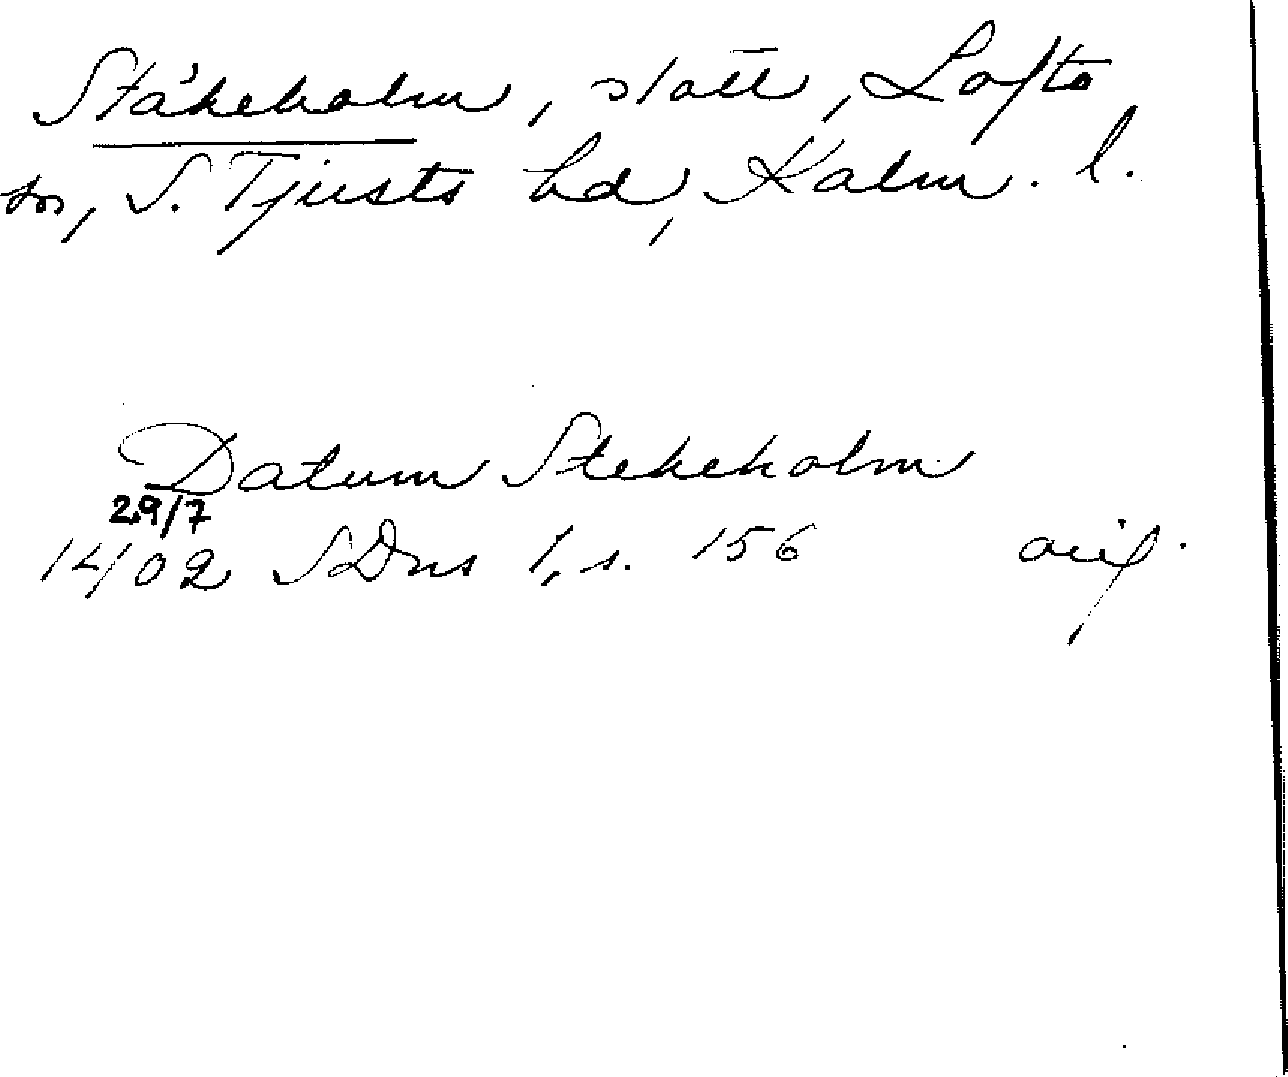 Ståkeholm, slott, Lofta
sn, S. Tjusts hd, Kalm. l.
Datum Stekeholm
29/7
1402 SDns 1, s. 156 orig.